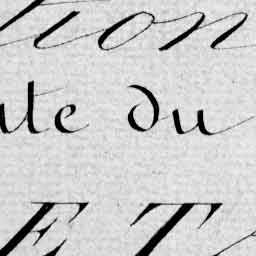 tion
ate du
ET